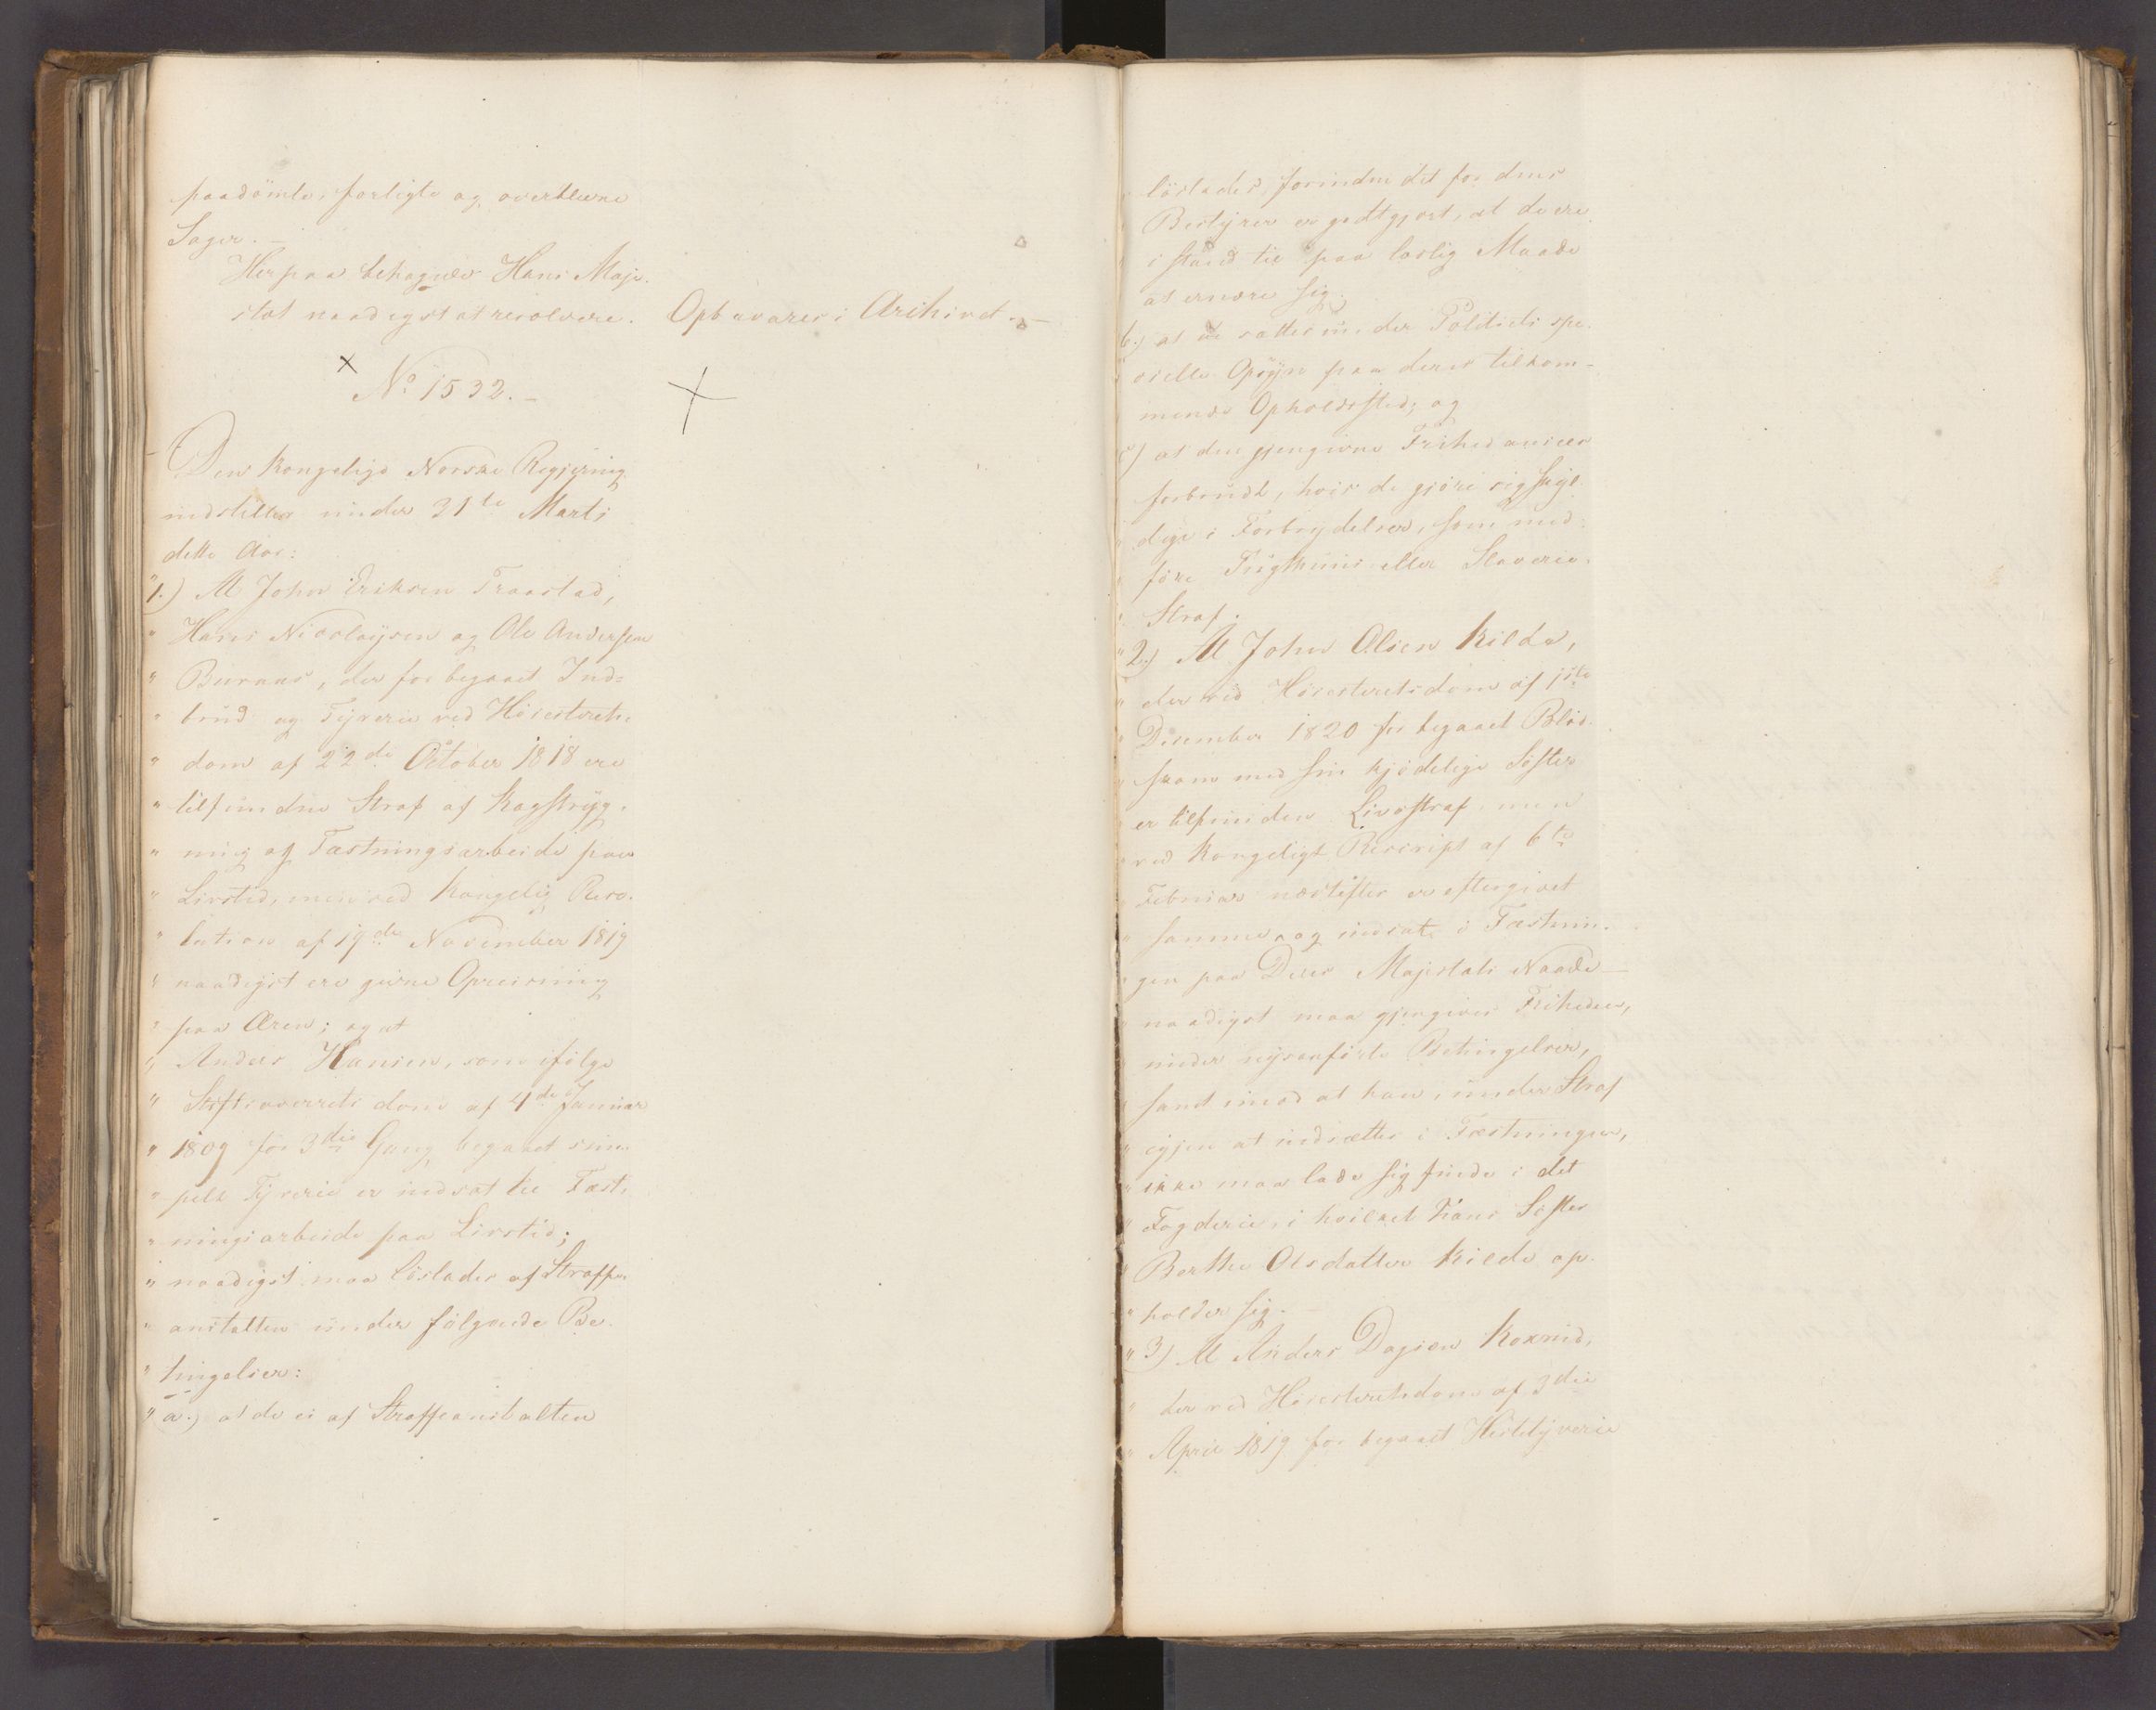 paadömte, forligte og overblevne
Sager. –
Herpaa behagede Hans Maje-
stæt naadigst at resolvere.
Opbevares i Archivet. –
No 1532. –
Den Kongelige Norske Regjering
indstiller under 21de Marts
dette Aar:
"1.) At John Eriksen Traastad,
" Hans Nicolaysen og Ole Andersen
" Buraas, der for begaaet Ind-
" brud og Tyverie ved Höiesterets-
" dom af 22de October 1818 ere
" tilfundne Straf af Kagstryg-
" ning og Fæstningsarbeide paa
" Livstid, men ved Kongelig Reso-
" lution af 19de November 1819
" naadigst ere givne Opreisning
" paa Æren; og at
" Anders Hansen, som ifölge
" Stiftsoverrets dom af 4de Januar
" 1809 for 3die Gang begaaet sim-
" pelt Tyverie er indsat til Fæst-
" ningsarbeide paa Livstid;
" naadigst maa löslades af Straffe-
" anstalten under fölgende Be-
" tingelser:
" a.) at de ei af Straffeanstalten
" löslades, forinden det for dens
" Bestyrer er godtgjort, at de ere
" i stand til paa lovlig Maade
" at ernære sig;
b.) at de sættes under Politiets spe-
" cielle Opsyn paa deres tilkom-
" mende Opholdssted; og
c) at den gjengivne Frihed ansees
" forbrudt, hvis de gjöre sig skyl-
" dige i Forbrydelser, som med-
" före Tugthuus eller Slaverie-
" Straf.
"2.) At John Olsen Kilde,
" der ved Höiesteretsdom af 1ste
" December 1820 for begaaet Blod-
" skam med sin kjödelige Söster
" er tilfunden Livsstraf, men
" ved Kongeligt Rescript af 6te
" Februar næstefter er eftergivet
" samme, og indsat i Fæstnin-
" gen paa Deres Majestæts Naade –
" naadigst maa gjengives Friheden,
" under nysanförte Betingelser,
" samt imod at han, under Straf
" igjen at indsættes i Fæstningen,
" ikke maa lade sig finde i det
" Fogderie, i hvilket hans Söster
" Berthe Olsdatter Kilde op-
" holder sig. –
" 3) At Anders Dagsen
" der ved Höiesteretsdom af 3die
" April 1819 for begaaet Hestetyverie